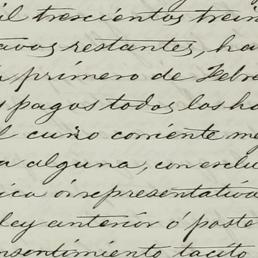 il trescientos trein
tavos restantes, ha
primero de Febre
pagos todos los ha
l cuño corriente me
a alguna, con exclu
ica ó representativa
ley anterior ó poste
nsentimiento tacito